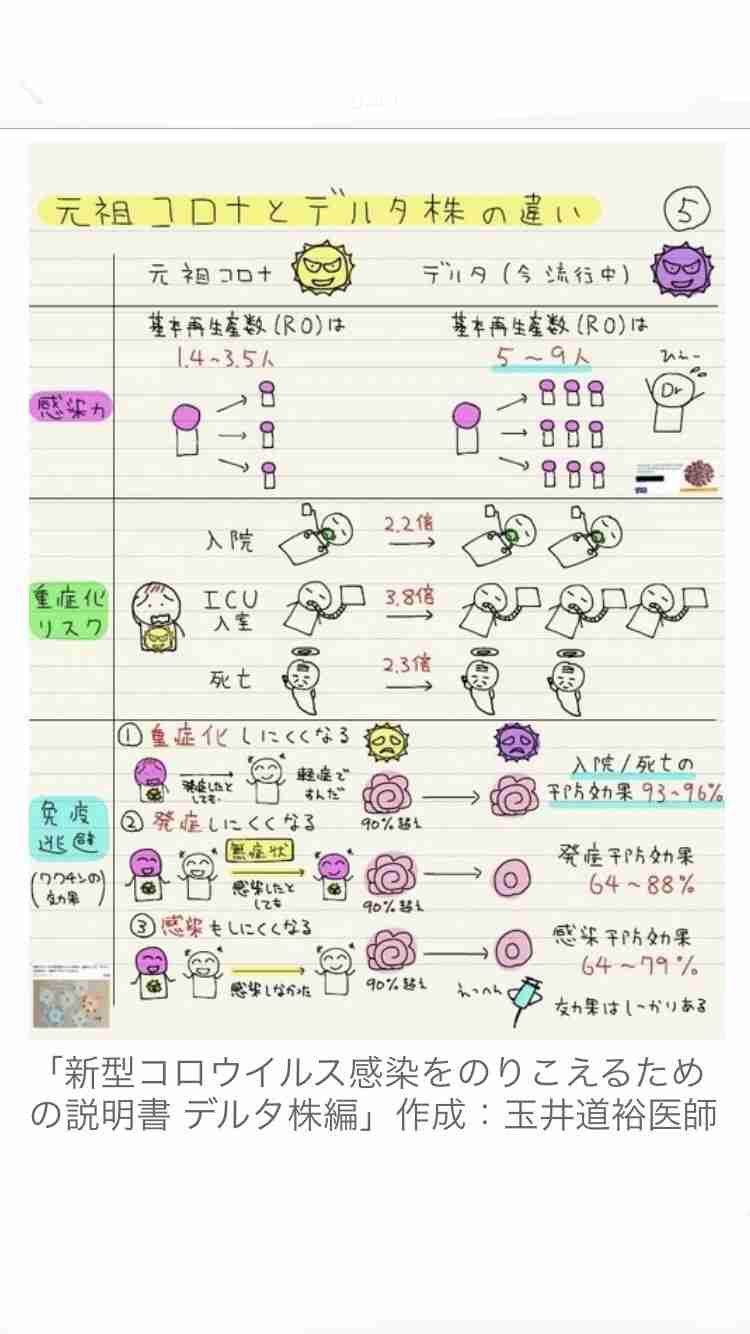 元祖コロナとデルタ株の違い
⑤
元祖コロナ
デルタ(今流行中)
感染力
基本再生産数(RO)は
1.4~3.5人
基本再生産数(RO)は
5~9人
ひえー
Dr
重症化
リスク
入院
2.2倍
ICU
入室
3.8倍
死亡
2.3倍
免疫
逃避
(ワクチンの
効果)
①重症化しにくくなる
発症したと
しても
軽症で
すんだ
90%越え
入院/死亡の
予防効果93~96%
②発症しにくくなる
無症状
感染したと
しても
90%越え
発症予防効果
64~88%
③感染もしにくくなる
感染しなかった
90%越え
感染予防効果
64~79%
えっへん
効果はしっかりある
「新型コロウイルス感染をのりこえるため
の説明書 デルタ株編」作成:玉井道裕医師